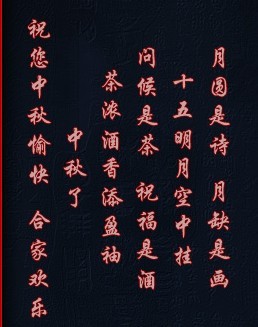 月圆是诗 月缺是画
十五明月空中挂
问候是茶 祝福是酒
茶浓酒香添盈袖
中秋了
祝您中秋愉快 合家欢乐